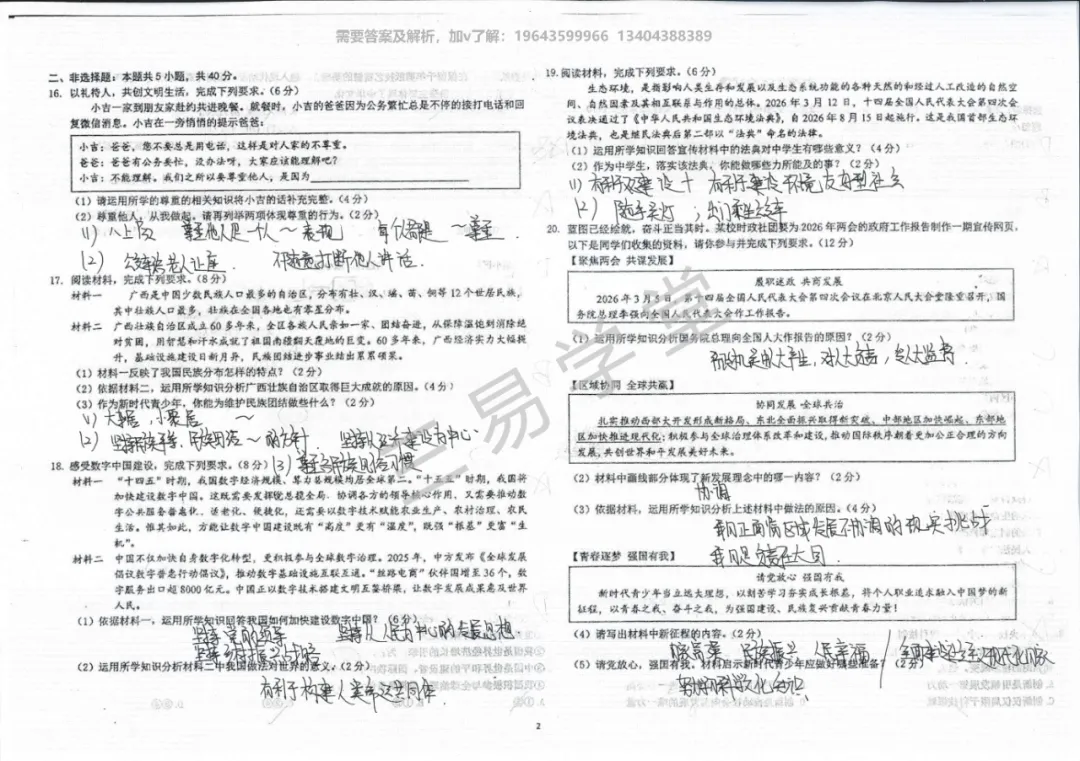 需要答案及解析，加v了解：19643599966 13404388389
二、非选择题：本题共5小题，共40分。
16. 以礼待人，共创文明生活，完成下列要求。（6分）
小吉一家到朋友家赴约共进晚餐。就餐时，小吉的爸爸因为公务繁忙总是不停的接打电话和回
复微信消息。小吉在一旁悄悄的提示爸爸：
小吉：爸爸，您不要总是用电话，这样是对人家的不尊重。
爸爸：爸爸有公务要忙，没办法呀，大家应该能理解吧？
小吉：不能理解。我们之所以要尊重他人，是因为
（1）请运用所学的尊重的相关知识将小吉的话补充完整。（4分）
（2）尊重他人，从我做起。请再列举两项体现尊重的行为。（2分）
(1) 八上 尊重他人是一个人～表现
(2) 公交车给老人让座 不随意打断他人讲话.
17. 阅读材料，完成下列要求。（8分）
材料一 广西是中国少数民族人口最多的自治区，分布有壮、汉、瑶、苗、侗等12个世居民族，
其中壮族人口最多，壮族在全国各地也有零星分布。
材料二 广西壮族自治区成立60多年来，全区各族人民亲如一家、团结奋进，从保障温饱到消除绝
对贫困，用智慧和汗水成就了祖国南疆翻天覆地的巨变。60多年来，广西经济实力大幅提
升，基础设施建设日新月异，民族团结进步事业结出累累硕果。
（1）材料一反映了我国民族分布怎样的特点？（2分）
（2）依据材料二，运用所学知识分析广西壮族自治区取得巨大成就的原因。（4分）
（3）作为新时代青少年，你能为维护民族团结做些什么？（2分）
(1) 大杂居，小聚居 ～
(2) 坚持民族平等、民族团结～的方针 坚持以经济建设为中心
(3) 尊重各民族风俗习惯
18. 感受数字中国建设，完成下列要求。（8分）
材料一 “十四五”时期，我国数字经济规模、算力总规模均居全球第二。“十五五”时期，我国将
加快建设数字中国。这既需要发挥党总揽全局、协调各方的领导核心作用，又需要推动数
字公共服务普惠化、适老化、便捷化，还需要以数字技术赋能农业生产、农村治理、农民
生活。惟其如此，方能让数字中国建设既有“高度”更有“温度”，既强“根基”更富“生
机”。
材料二 中国不仅加快自身数字化转型，更积极参与全球数字治理。2025年，中方发布《全球发展
倡议数字普惠行动倡议》，推动数字基础设施互联互通。“丝路电商”伙伴国增至36个，数
字服务出口超8000亿元。中国正以数字技术搭建文明互鉴桥梁，让数字发展成果惠及世界
人民。
（1）依据材料一，运用所学知识回答我国如何加快建设数字中国？（6分）
坚持党的领导 坚持以人民为中心的发展思想
坚持乡村振兴战略
（2）运用所学知识分析材料二中我国做法对世界的意义。（2分）
有利于构建人类命运共同体
19. 阅读材料，完成下列要求。（6分）
生态环境，是指影响人类生存和发展以及生态系统功能的各种天然的和经过人工改造的自然空
间、自然因素及其相互联系与作用的总体。2026年3月12日，十四届全国人民代表大会第四次会
议表决通过了《中华人民共和国生态环境法典》，自2026年8月15日起施行。这是我国首部生态环
境法典，也是继民法典后第二部以“法典”命名的法律。
（1）运用所学知识回答宣传材料中的法典对中学生有哪些意义？（4分）
（2）作为中学生，落实该法典，你能做哪些力所能及的事？（2分）
(2) 随手关灯；出门乘坐公交车
20. 蓝图已经绘就，奋斗正当其时。某校时政社团要为2026年两会的政府工作报告制作一期宣传网页，
以下是同学们收集的资料，请你参与并完成下列要求。（12分）
【聚焦两会 共谋发展】
履职述政 共商发展
2026年3月5日，第十四届全国人民代表大会第四次会议在北京人民大会堂隆重召开，国
务院总理李强向全国人民代表大会作工作报告。
（1）运用所学知识分析国务院总理向全国人大作报告的原因？（2分）
行政机关是由人大产生，对人大负责，受人大监督.
【区域协同 全球共赢】
协同发展 全球共治
扎实推动西部大开发形成新格局、东北全面振兴取得新突破、中部地区加快崛起、东部地
区加快推进现代化；积极参与全球治理体系改革和建设，推动国际秩序朝着更加公正合理的方向
发展，共创世界和平发展美好未来。
（2）材料中画线部分体现了新发展理念中的哪一内容？（2分）
协调
（3）依据材料，运用所学知识分析上述材料中做法的原因。（4分）
我国正面临区域发展不协调的现实挑战
我国是负责任大国
【青春逐梦 强国有我】
请党放心 强国有我
新时代青少年当立远大理想，以刻苦学习夯实成长根基，将个人职业追求融入中国梦的新
征程，以青春之我、奋斗之我，为强国建设、民族复兴贡献青春力量！
（4）请写出材料中新征程的内容。（2分）
（5）请党放心，强国有我。材料启示新时代青少年应做好哪些准备？（2分）
努力学习科学文化知识
三易学堂
2